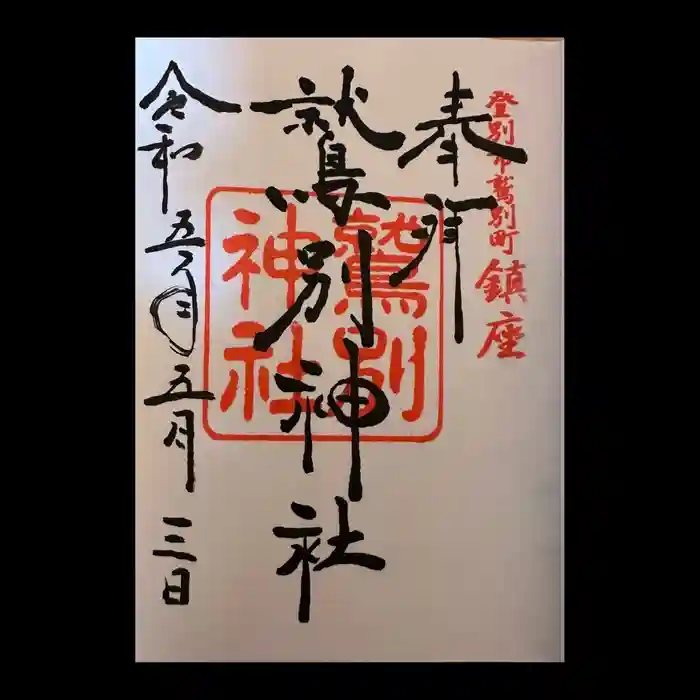 登別市鷲別町鎮座
奉拝
鷲別神社
鷲別
神社
令和五五月三日